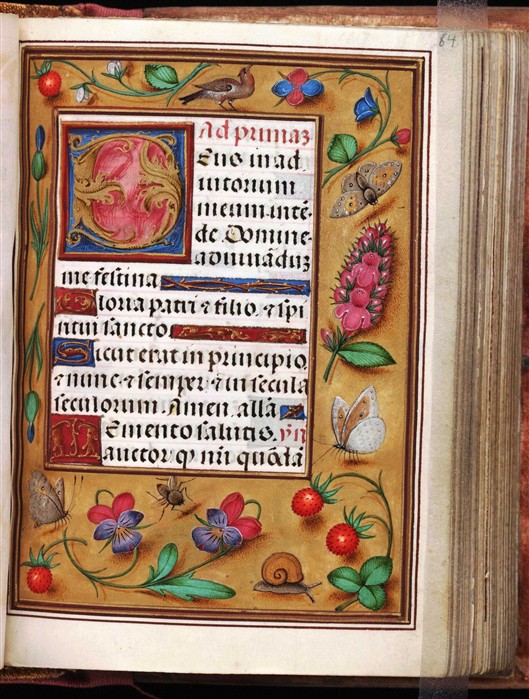 64
Ad primaz
Deus in ad
iutorium
meum inte-
de Domine
adiuuāduz
me festina
Gloria patri ⁊ filio. ⁊ spi
ritui sancto
Sicut erat in principio
⁊ nunc ⁊ semper ⁊ in secula
seculorum. Amen. allā
Memento salutis. ẏn
auctor ꝙ nr̄i quōdā